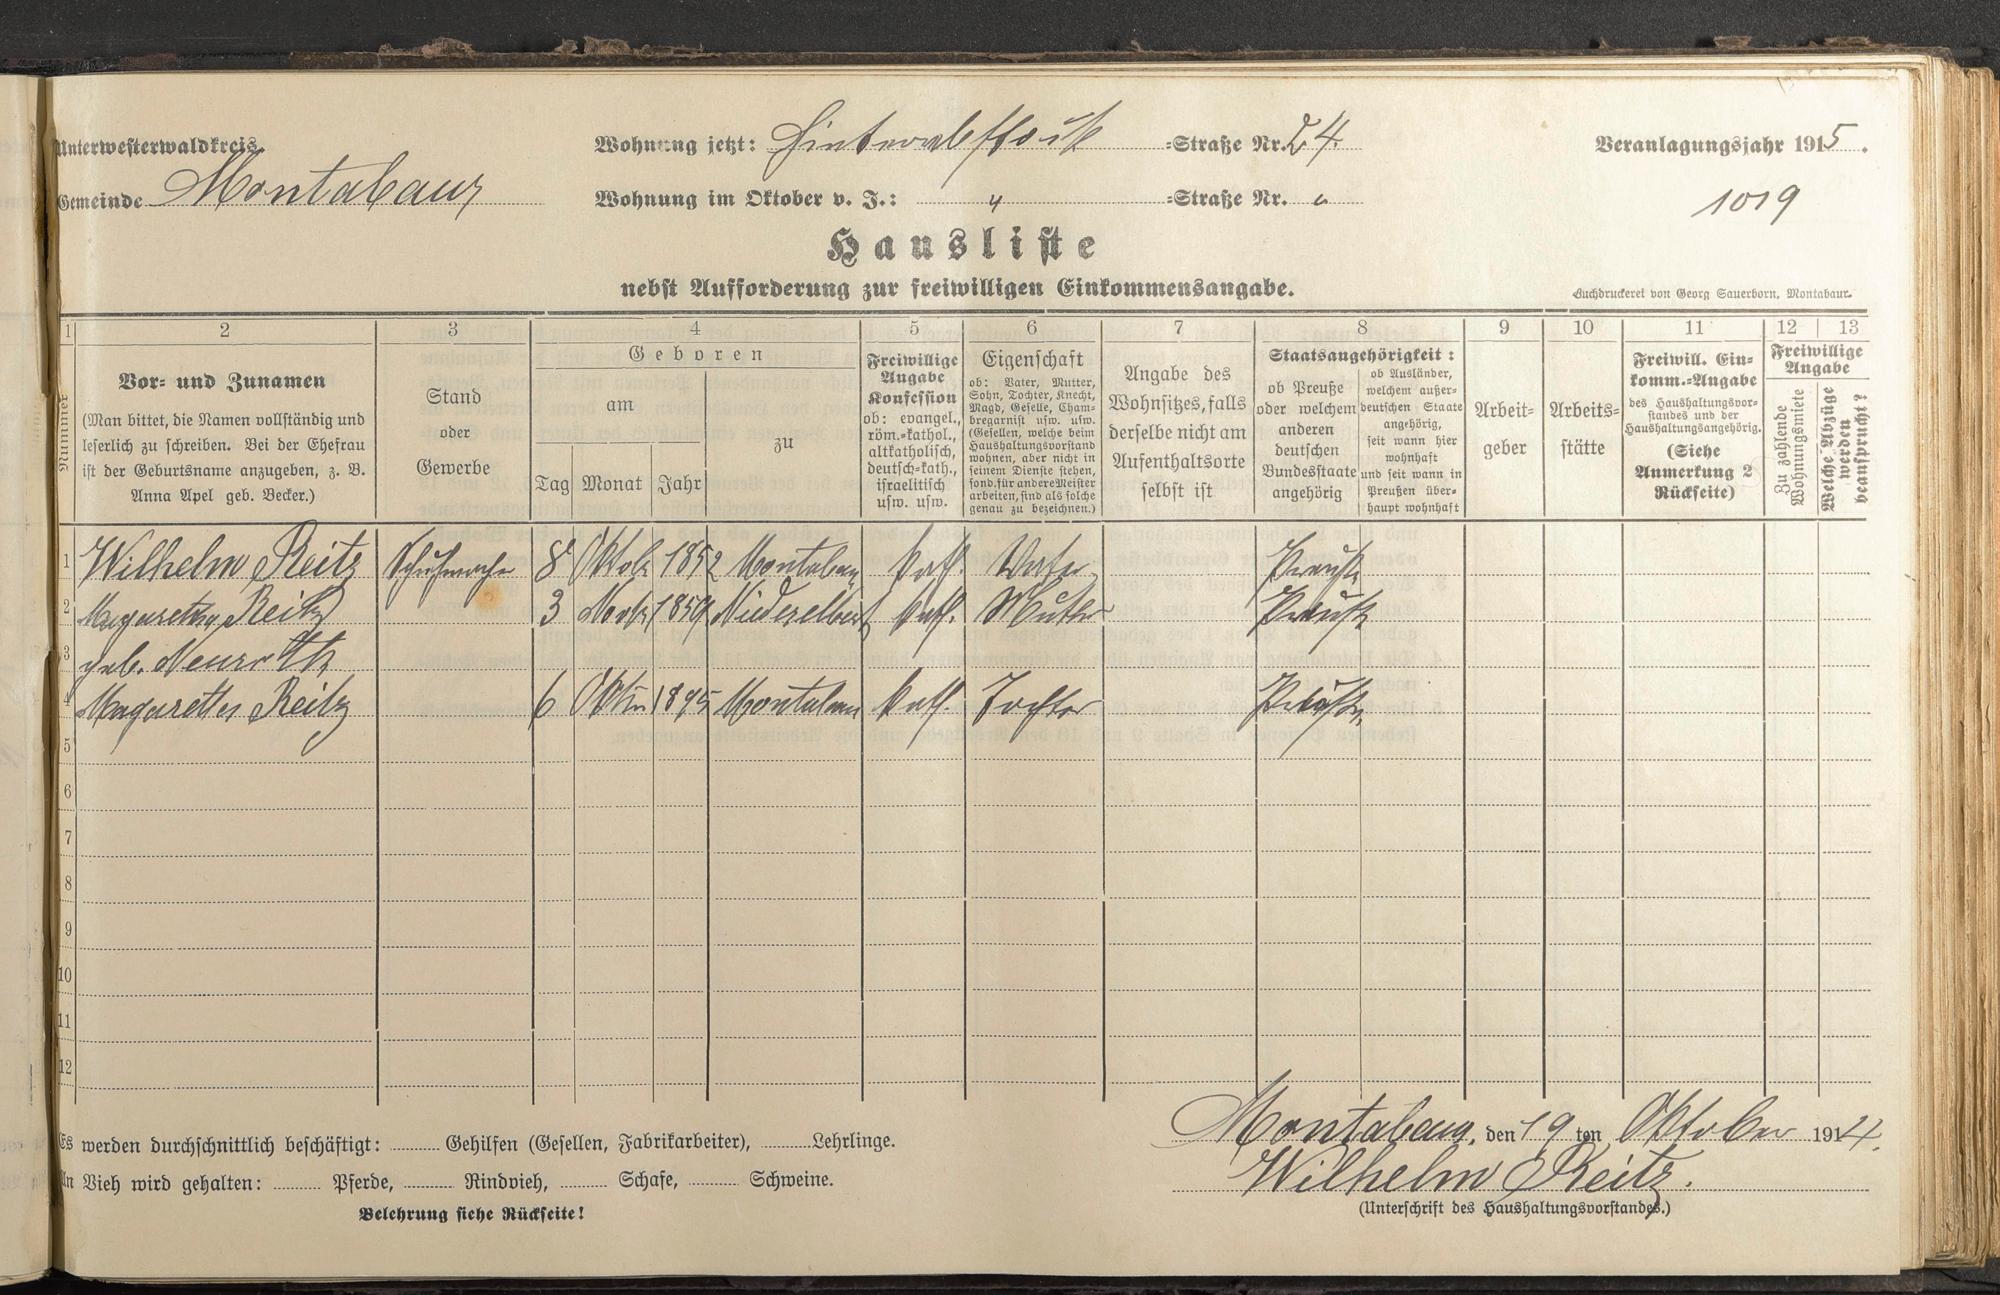 Unterwesterwaldkreis.
Wohnung jetzt: -Straße Nr. 24.
Veranlagungsjahr 1915.
Gemeinde Montabaur
Wohnung im Oktober v. J.: " -Straße Nr. "
1019
Hausliste
nebst Aufforderung zur freiwilligen Einkommensangabe.
Buchdruckerei von Georg Sauerborn, Montabaur.
1 2 3 4 5 6 7 8 9 10 11 12 13
Nummer
Vor- und Zunamen
(Man bittet, die Namen vollständig und
leserlich zu schreiben. Bei der Ehefrau
ist der Geburtsname anzugeben, z. B.
Anna Apel geb. Becker.)
Stand
oder
Gewerbe
Geboren
am
zu
Tag Monat Jahr
Freiwillige
Angabe
Konfession
ob: evangel.,
röm.-kathol.,
altkatholisch,
deutsch-kath.,
israelitisch
usw. usw.
Eigenschaft
ob: Vater, Mutter,
Sohn, Tochter, Knecht,
Magd, Geselle, Cham-
bregarnist usw. usw.
(Gesellen, welche beim
Haushaltungsvorstand
wohnen, aber nicht in
seinem Dienste stehen,
sond. für andere Meister
arbeiten, sind als solche
genau zu bezeichnen.)
Angabe des
Wohnsitzes, falls
derselbe nicht am
Aufenthaltsorte
selbst ist
Staatsangehörigkeit:
ob Preuße
oder welchem
anderen
deutschen
Bundesstaate
angehörig
ob Ausländer,
welchem außer-
deutschen Staate
angehörig,
seit wann hier
wohnhaft
und seit wann in
Preußen über-
haupt wohnhaft
Arbeit-
geber
Arbeits-
stätte
Freiwill. Ein-
komm.-Angabe
des Haushaltungsvor-
standes und der
Haushaltungsangehörig.
(Siehe
Anmerkung 2
Rückseite)
Freiwillige
Angabe
Zu zahlende
Wohnungsmiete
Welche Abzüge
werden
beansprucht?
1 Wilhelm Reitz Schuhmacher 8 Oktob 1852 Montabaur kath. Vater Preuße
2 Margaretha Reitz 3 1859 Niederelbert kath. Mutter Preuße
3 geb. Neuroth
4 Margaretha Reitz 6 1895 Montabaur kath. Tochter Preuße
5
6
7
8
9
10
11
12
Es werden durchschnittlich beschäftigt: Gehilfen (Gesellen, Fabrikarbeiter), Lehrlinge.
An Vieh wird gehalten: Pferde, Rindvieh, Schafe, Schweine.
Belehrung siehe Rückseite!
Montabaur, den 19 ten Oktober 1914.
Wilhelm Reitz.
(Unterschrift des Haushaltungsvorstandes.)